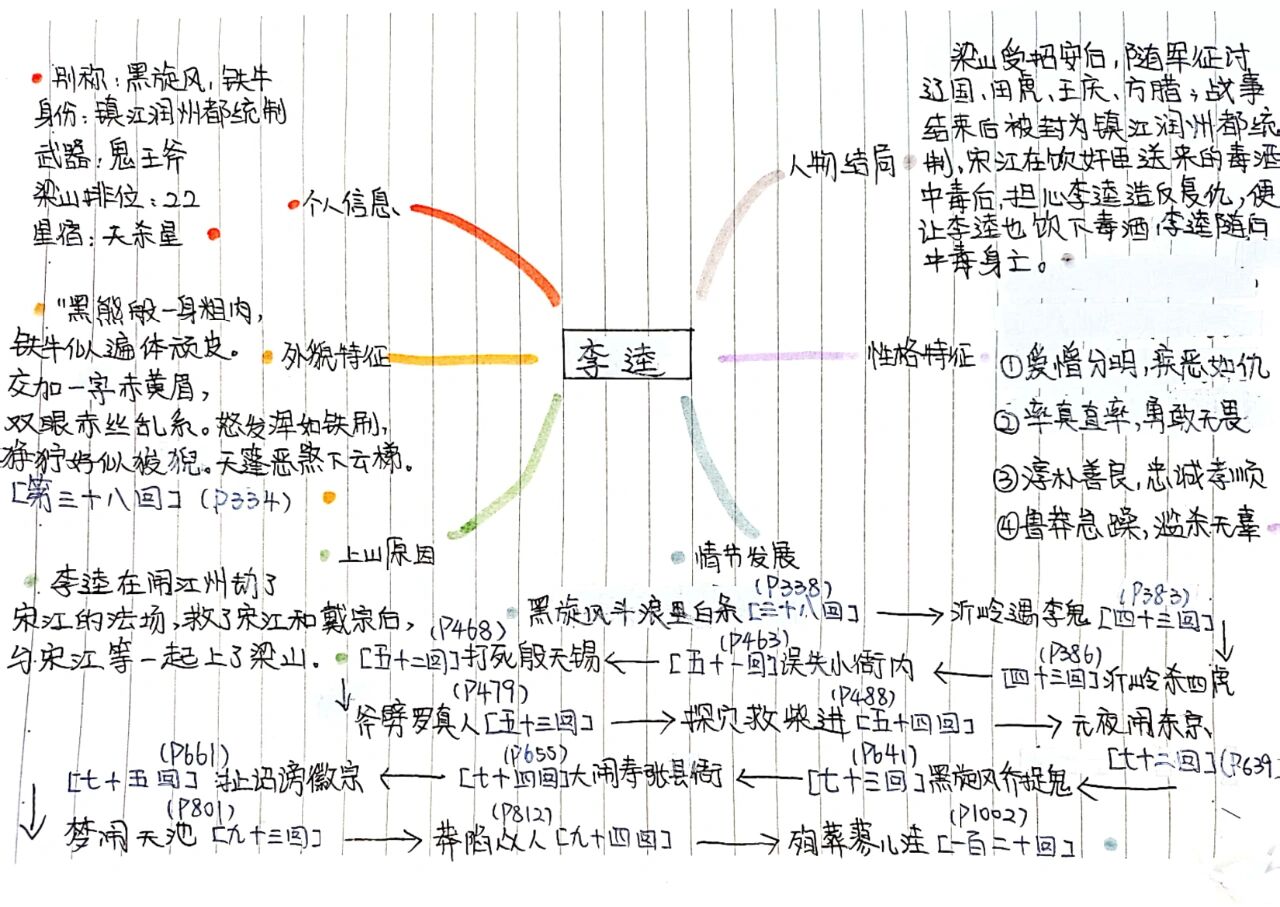 李逵
别称：黑旋风，铁牛
身份：镇江润州都统制
武器：鬼王斧
梁山排位：22
星宿：天杀星
个人信息
"黑熊般一身粗肉，
铁牛似遍体顽皮。
交加一字赤黄眉，
双眼赤丝乱系。怒发浑如铁刷，
狰狞好似狻猊。天蓬恶煞下云梯。
[第三十八回]（P334）
外貌特征
上山原因
李逵在闹江州劫了
宋江的法场，救了宋江和戴宗后，
与宋江等一起上了梁山。
人物结局
梁山受招安后，随军征讨
辽国、田虎、王庆、方腊；战事
结束后被封为镇江润州都统
制，宋江在饮奸臣送来的毒酒
中毒后，担心李逵造反复仇，便
让李逵也饮下毒酒，李逵随后
中毒身亡。
性格特征
①爱憎分明，疾恶如仇
②率真直率，勇敢无畏
③淳朴善良，忠诚孝顺
④鲁莽急躁，滥杀无辜
情节发展
黑旋风斗浪里白条[三十八回]（P338）→沂岭遇李鬼[四十三回]（P383）
↓
[四十三回]沂岭杀四虎（P386）
←[五十一回]误失小衙内（P463）
←[五十二回]打死殷天锡（P468）
↓斧劈罗真人[五十三回]（P479）→探穴救柴进[五十四回]（P488）→元夜闹东京
[七十二回]（P639）
←[七十三回]黑旋风乔捉鬼（P641）
←[七十四回]大闹寿张县衙（P655）
←[七十五回]扯诏谤徽宗（P661）
↓梦闹天池[九十三回]（P801）→莽陷众人[九十四回]（P812）→殉葬蓼儿洼[一百二十回]（P1002）